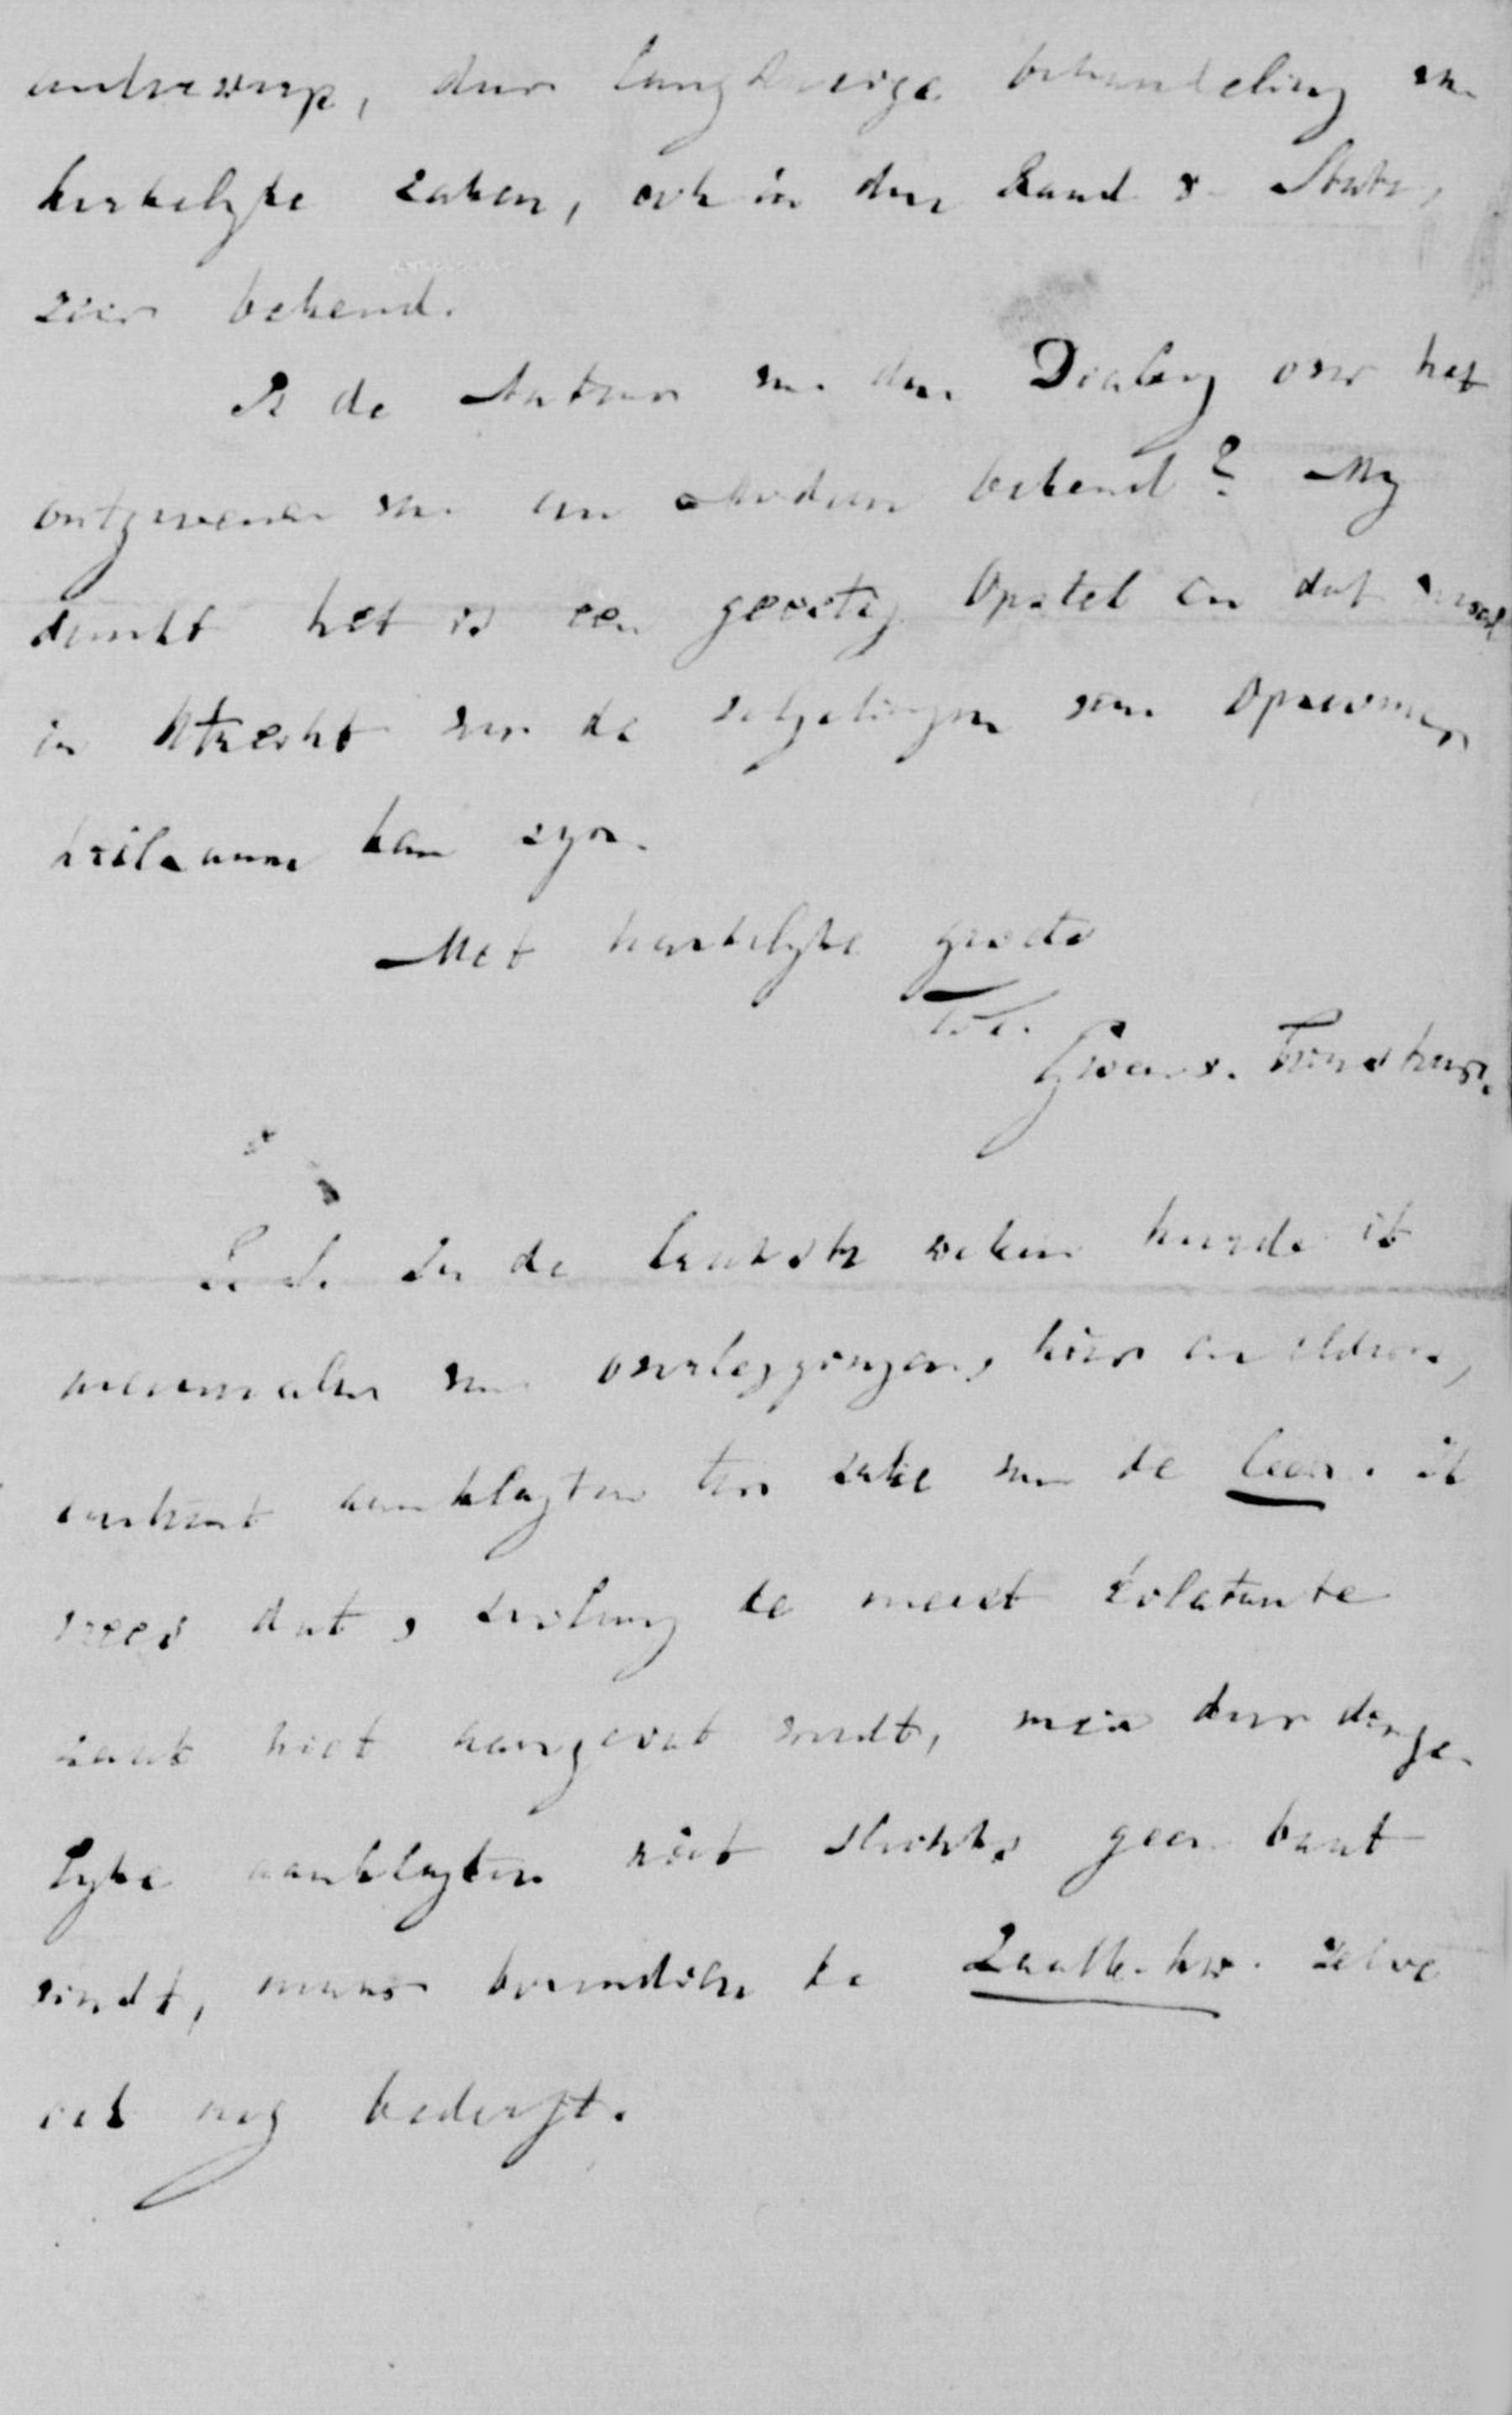 onderwerp, door langdurige behandeling van
kerkelyke zaken, ook in den Raad v. State,
zeer bekend.
Is de Auteur van den Dialoog over het
ontgroenen van een bekend? My
dunkt het is een geestig Opstel en dat vooral
in Utrecht voor de van Opzoomer
heilzaam kan zyn.
Met hartelyke groete
TvE.
Groen v. Prinsterer.
P. S. In de laatste weken hoorde ik
meermalen van overleggingen, hier en elders,
omtrent aanklagten ter zake van de leer. ik
vrees dat, zoolang de meest éclatante
zaak niet aangevat wordt, men door derge-
lyke aanklagten niet slechts geen baat
vindt, maar bovendien de Zaalb. kw. zelve
ook nog bederft.